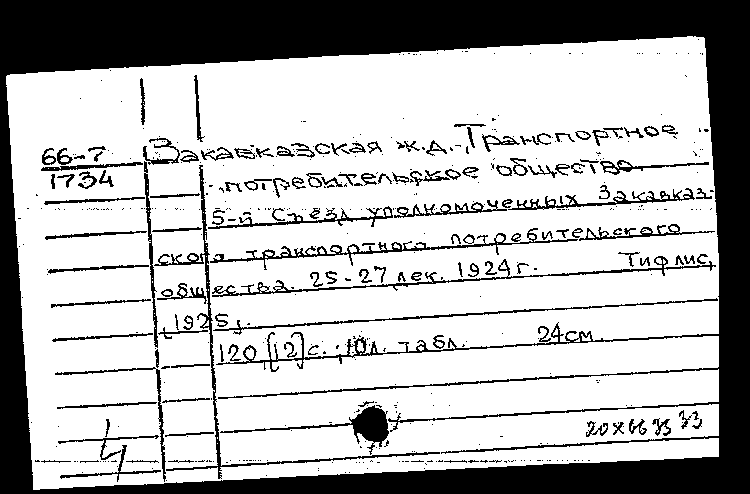 66-7 Закавказская ж.д. Транспортное
1734 потребительское общество.
5-й съезд уполномоченных Закавказ-
ского транспортного потребительского
общества. 25-27 дек. 1924г. Тифлис,
[1925].
120,[12]с.; 10л. табл. 24см.
20Х66 33
4